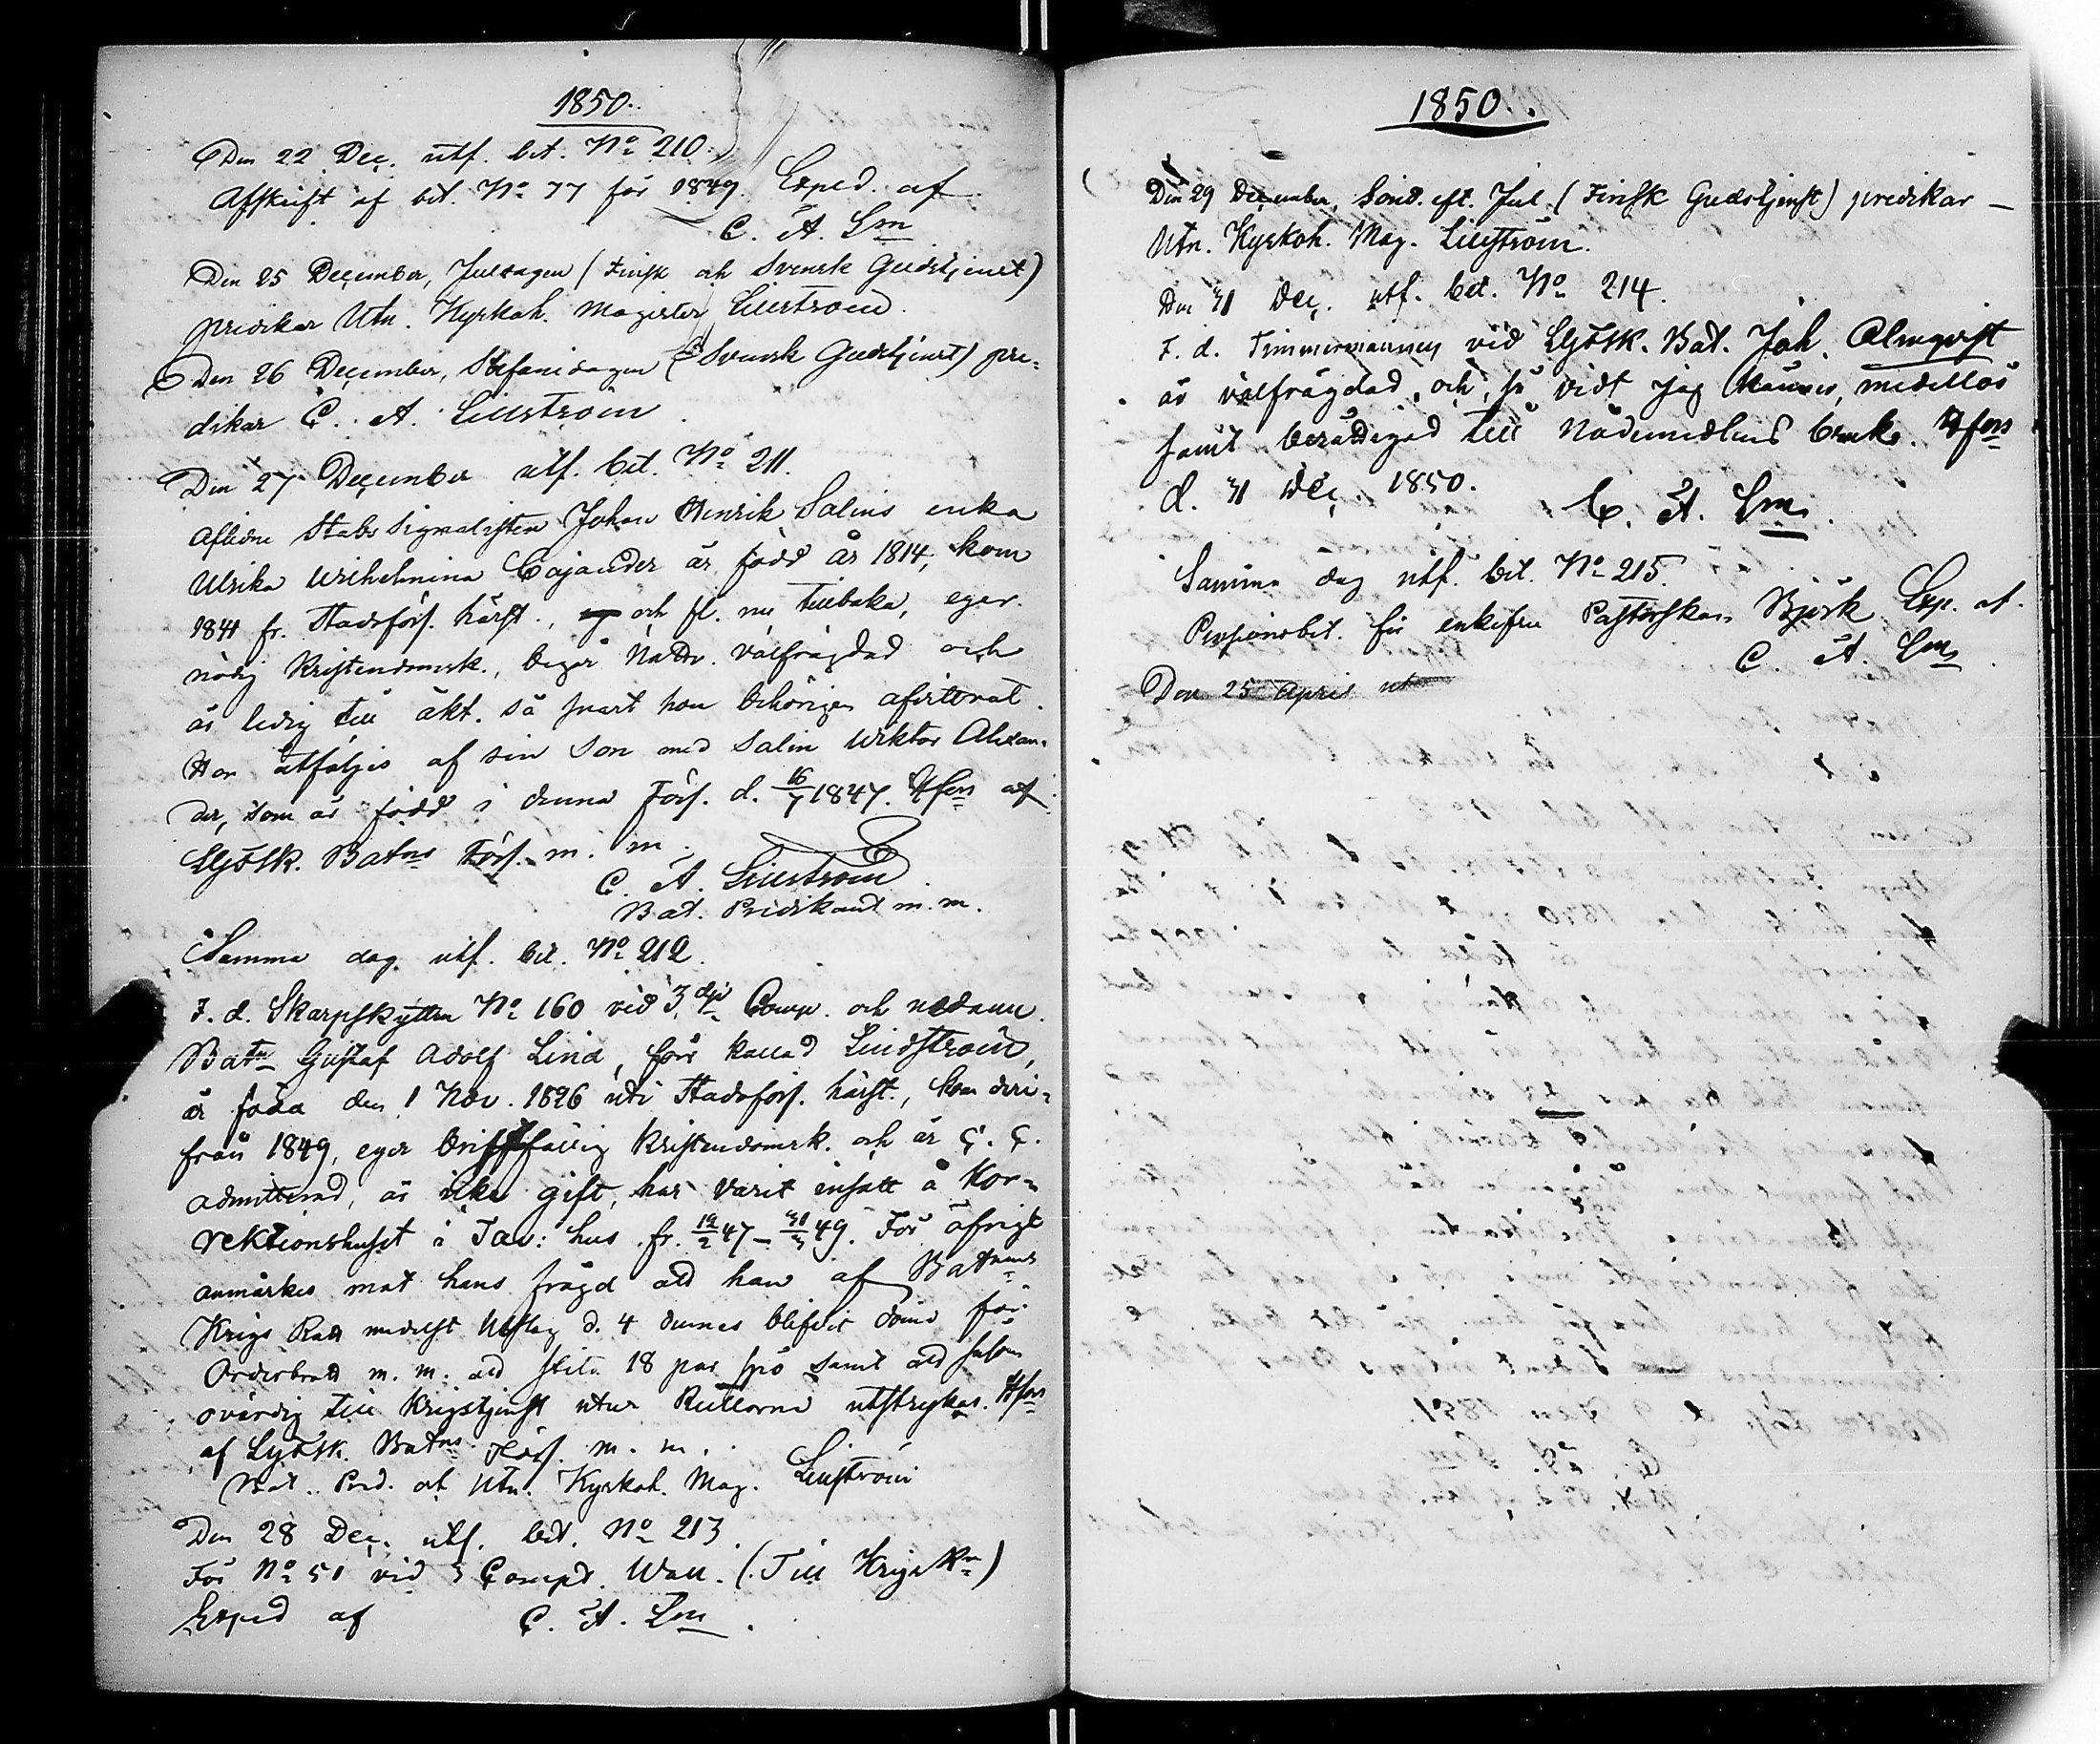 1850.
Den 22 Dec. utf. bet. No 210.
Afskrift af bet. No 77 för 1849. Exped. af
C. A. Lm
Den 25 December, Juldagen (Finsk och Svensk Gudstjenst)
predikar Utn. Kyrkoh. Magister Lillström.
Den 26 December, Stefanidagen (Svensk Gudstjenst) pre-
dikar C. A. Lillström.
Den 27 December utf. bet. No 211.
Aflidne Stabs Signalisten Johan Henrik Salins enka
Ulrika Wilhelmina Cajander är född år 1814, kom
1841 fr. Stadsförs. härst., och fl. nu tillbaka, eger
nödig Kristendomsk., begår Nattv. välfrägdad och
är ledig till äkt. så snart hon behörigen afvittrat.
Hon åtföljes af sin Son med Salin Wiktor Alexan-
der, som är född i denna Förs. d. 16/7 1847. Hfors af
Sjösk. Batns Förs. m. m.
C. A. Lillström
Bat. Predikant m. m.
Samma dag utf. bet. No 212.
F. d. Skarpskytten No 160 vid 3dje Comp. och nedann.
Batn Gustaf Adolf Lind, förr kallad Lindström,
är född den 1 Nov. 1826 uti Stadsförs. härst., kom deri-
från 1849, eger bristfällig Kristendomsk. och är
admitterad, är icke gift, har varit insatt å Kor-
rektionshuset i Tav: hus fr. 12/2 47 – 31/3 49. För öfrigt
anmärkes mot hans frägd att han af Batnens
Krigs Rätt medelst Utslag d. 4 dennes blifvit dömd för
Orderbrott m. m. att slita 18 par spö samt att såsom
ovärdig till Krigstjenst utur Rullorna utstrykas. Hfors
af Sjösk. Batns Förs. m. m.
Bat. Pred. och Utn. Kyrkoh. Mag. Lillström
Den 28 Dec. utf. bet. No 213.
För No 51 vid 3 Comp. Wall. (Till Krigs Rn)
Exped af C. A. Lm.
1850.
Den 29 December, Sönd. eft. Jul (Finsk Gudstjenst) predikar
Utn. Kyrkoh. Mag. Lillström.
Den 31 Dec. utf. bet. No 214.
F. d. Timmermannen vid Sjösk. Bat. Joh. Almqvist
är välfrägdad, och, så vidt jag känner, medellös
samt berättigad till Nådemedlens bruk. Hfors
d. 31 Dec 1850.
C. A. Lm.
Samma dag utf. bet. No 215.
Pensionsbet. för enkefru Pastorskan Björk. Exp. af
C. A. Lm.
Den 25 April ut